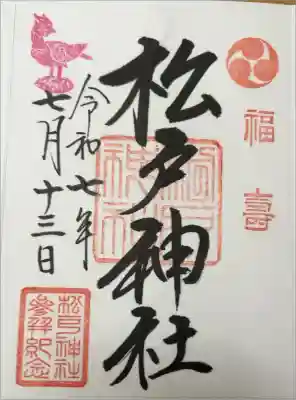 福壽
松戸神社
令和七年
七月十三日
松戸神社
参拝紀念